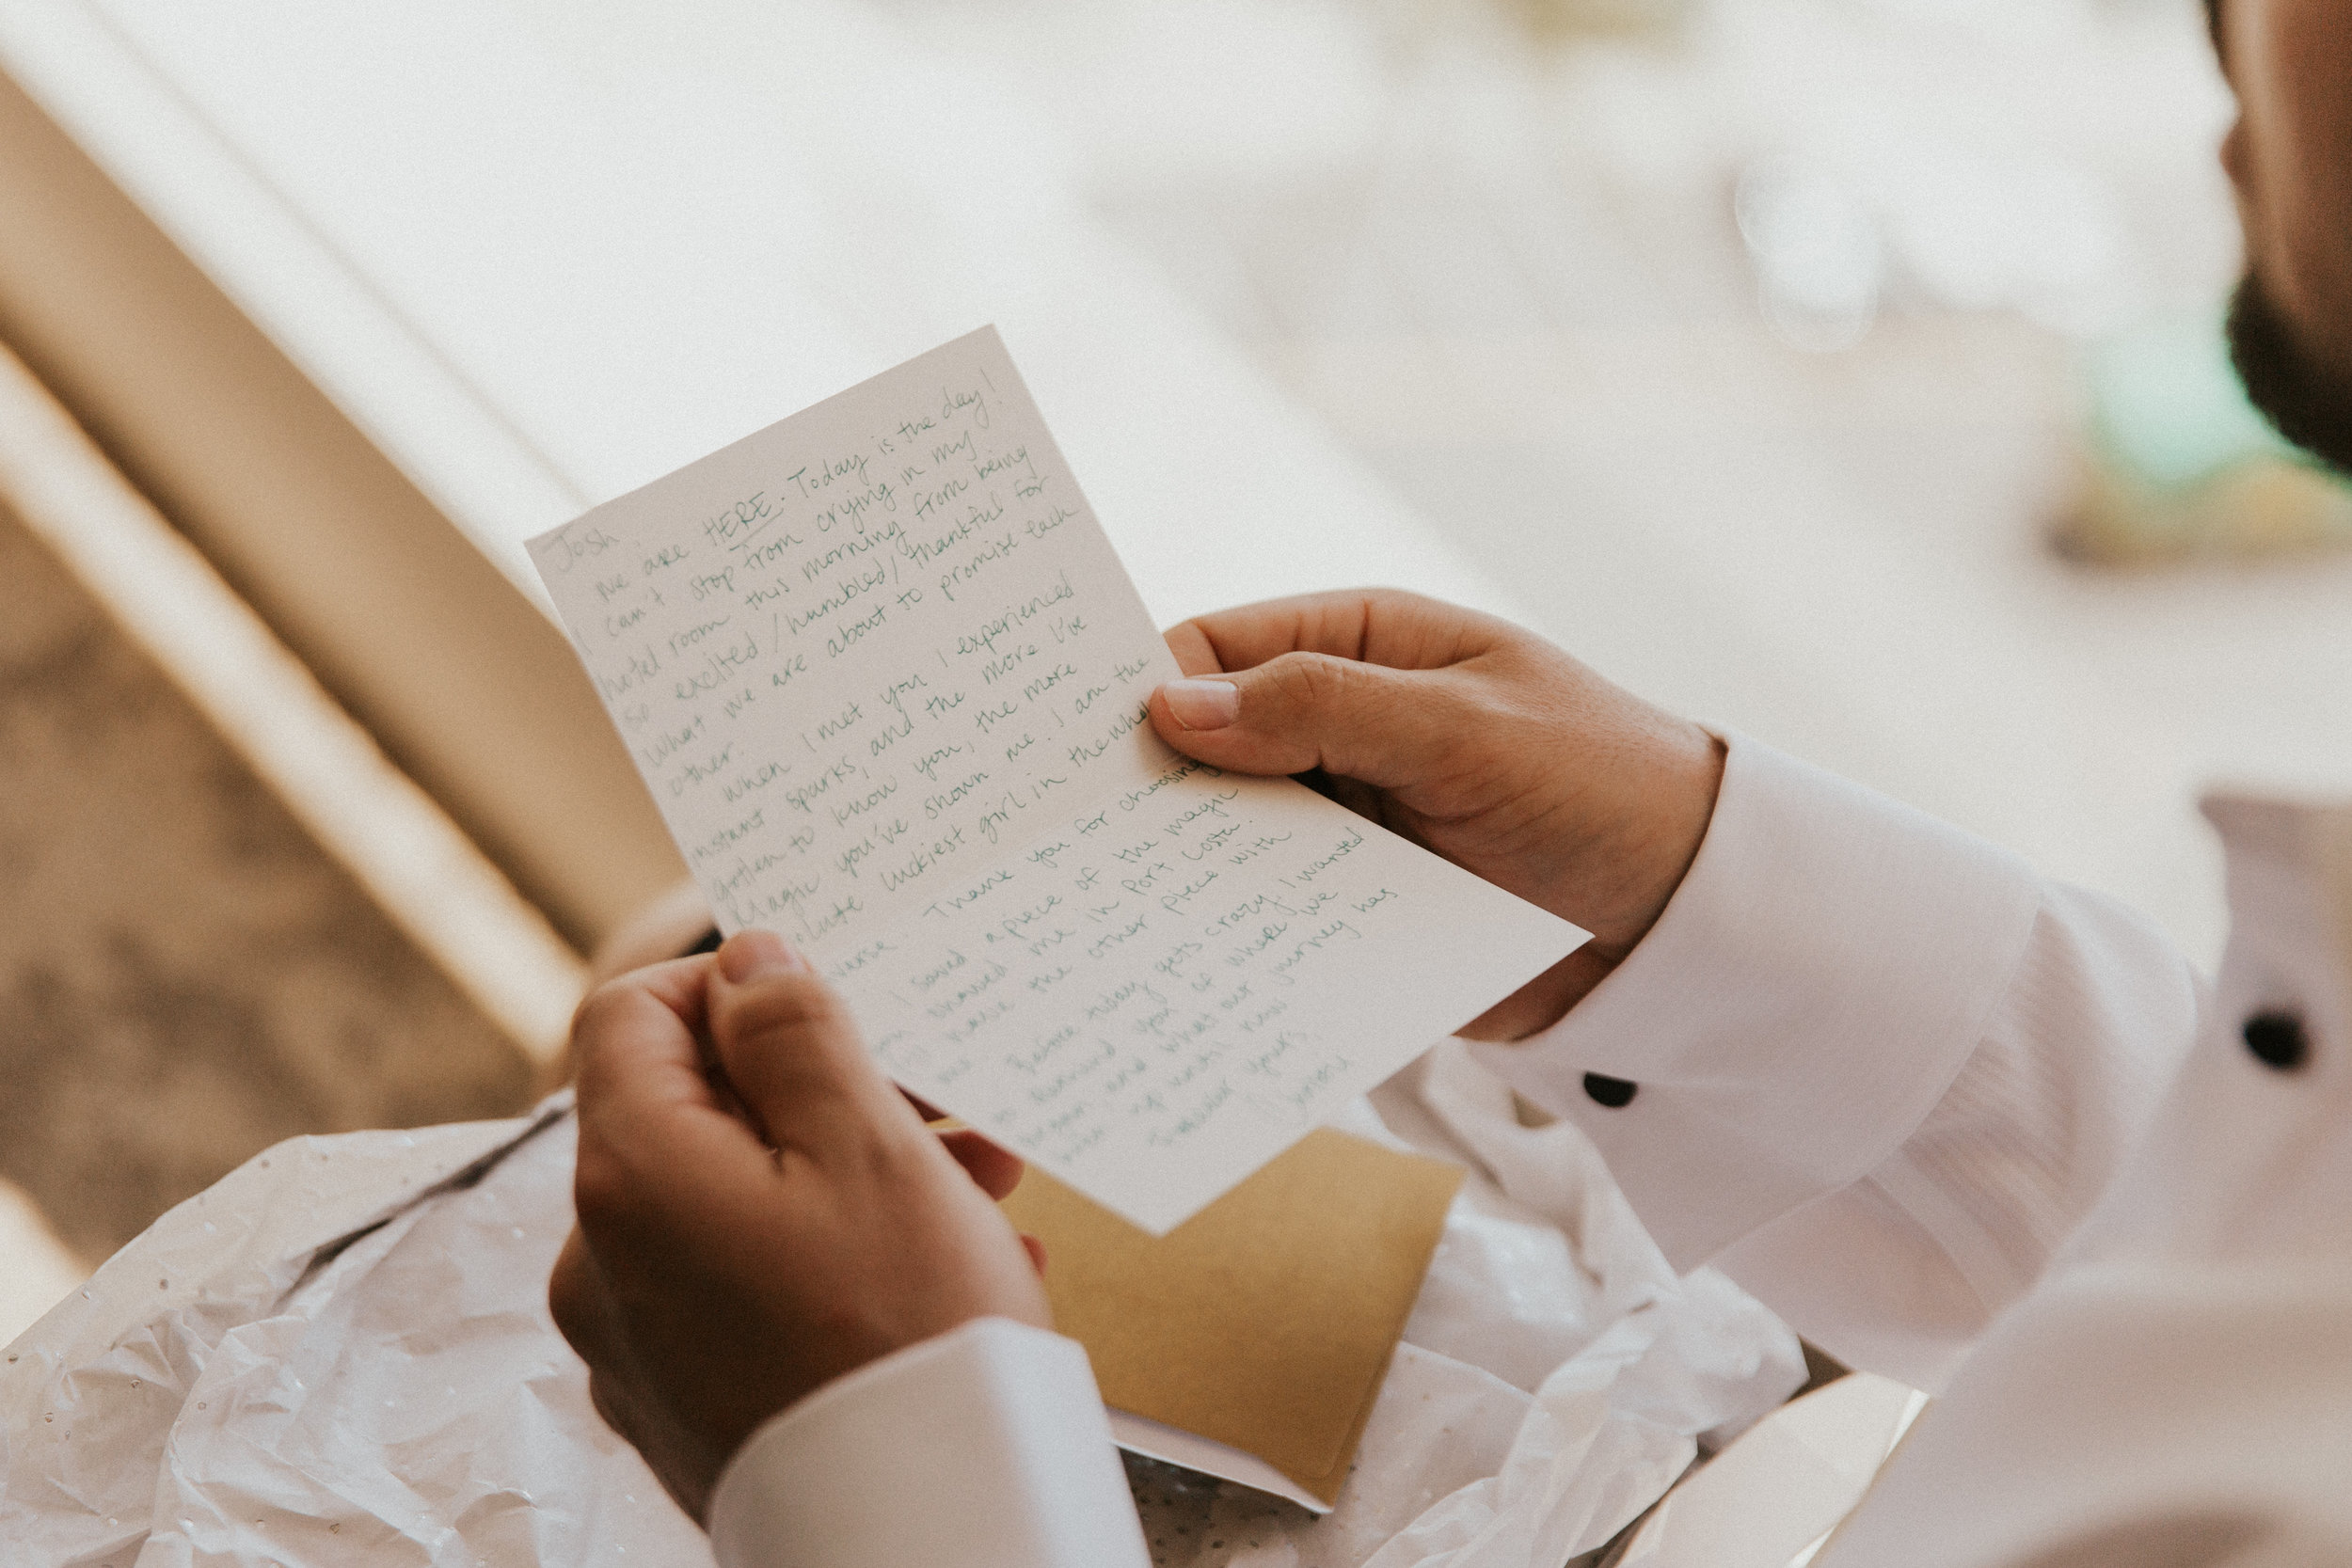 Josh,
We are HERE. Today is the day!
I can't stop from crying in my
hotel room this morning from being
so excited/humbled/thankful for
what we are about to promise each
other.
When I met you I experienced
instant sparks, and the more I've
gotten to know you, the more
Magic you've shown me. I am the
luckiest girl in the whol
Thank you for choosing
I saved a piece of the magic
me in Port Costa.
have the other piece with
me.
Before today gets crazy, I wanted
to remind you of where we
began, and what our journey has
until now
yours,